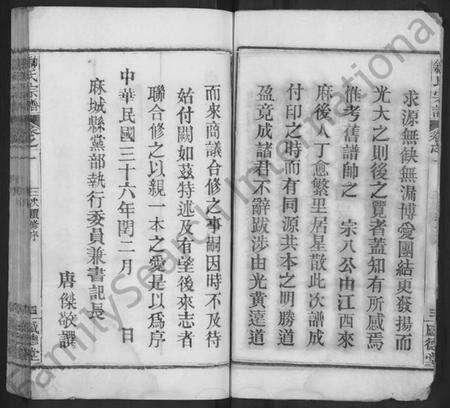 求源無缺無漏博愛團結更發揚而
光大之則後之覽者蓋知有所感焉
惟考舊譜帥之 宗八公由江西來
麻後人丁愈繁里居星散此次譜成
付印之時而有同源共本之明勝道
盈竟成諸君不辭跋涉由光黃遠道
而來商議合修之事嗣因時不及待
始付闕如茲特述及有望後來志者
聯合修之以親一本之愛是以為序
中華民國三十六年閏二月 日
麻城縣黨部執行委員兼書記長
唐傑敬譔
FamilySearch International